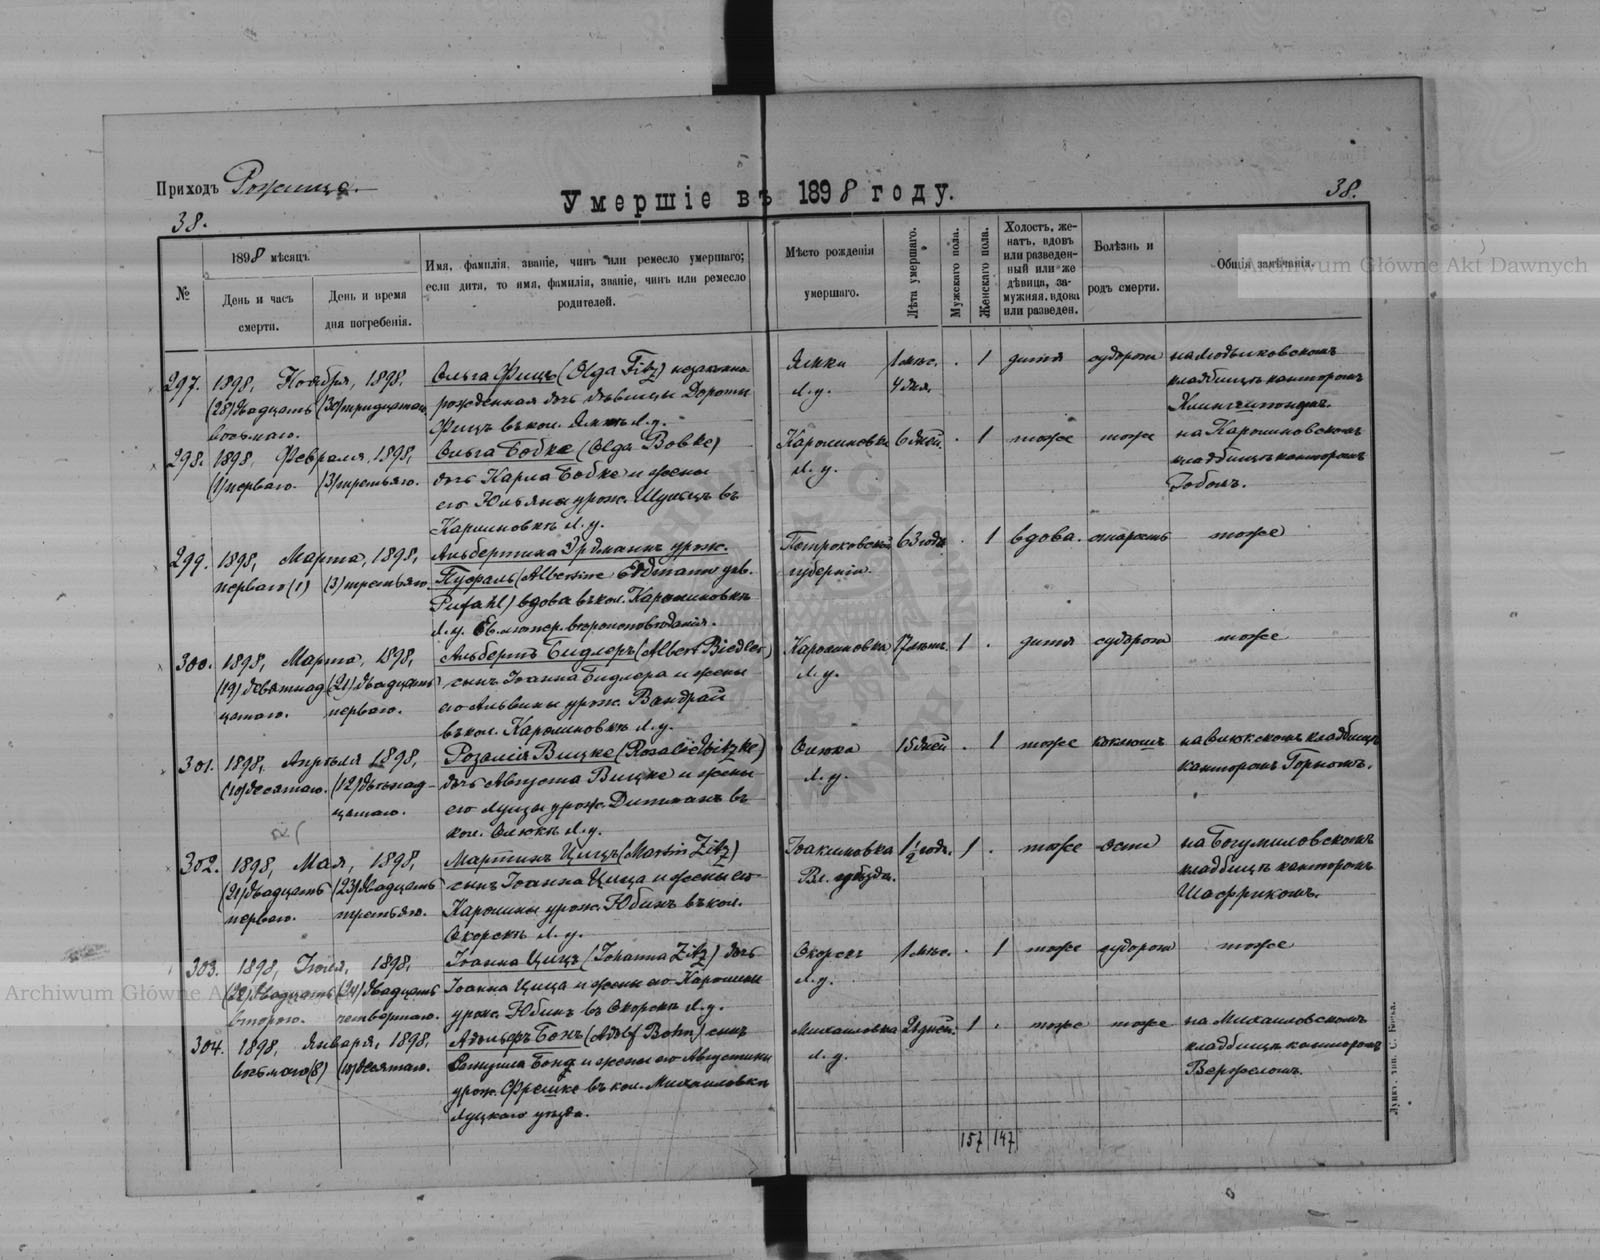 Приходъ Рожище.
Умершіе въ 1898 году.
38.
38.
№
1898 мѣсяцъ
День и часъ смерти.
День и время дня погребенія.
Имя, фамилія, званіе, чинъ или ремесло умершаго;
если дитя, то имя, фамилія, званіе, чинъ или ремесло
родителей.
Мѣсто рожденія
умершаго.
Лѣта умершаго.
Мужскаго пола.
Женскаго пола.
Холостъ, же-
натъ, вдовъ
или разведен-
ный или же
дѣвица, за-
мужняя, вдова
или разведен.
Болѣзнь и
родъ смерти.
Общія замѣчанія.
297. 1898, Ноября, 1898.
(28) двадцать восьмаго. (30) тридцатаго
Ольга Фицъ (Olga Fitz) незаконно
рожденная дочь дѣвицы Дороты
Фицъ въ кол. Ямки Л. у.
Ямки
Л. у.
1 мѣс.
4 дня.
. 1 дитя судорож
на Людвиковскомъ
кладбищѣ канторомъ
298. 1898, Февраля, 1898,
(1) перваго. (3) третьяго.
Ольга Бобке (Olga Bobke)
дочь Карла Бобке и жены
его Юльяны урож. Шульцъ въ
Каролиновкѣ Л. у.
Каролиновка
Л. у.
6 дней. . 1 тоже тоже
на Каролиновскомъ
кладбищѣ канторомъ
Гобомъ.
299. 1898, Марта, 1898,
перваго (1) (3) третьяго.
Альбертина Эрдманъ урож.
Пуфаль (Albertine Erdmann geb.
Pufahl) вдова въ кол. Каролиновкѣ
Л. у. Ев. лютер. вѣроисповѣданія.
Петроковской
губерніи.
63 года . 1 вдова. старость тоже
300. 1898, Марта, 1898,
(19) девятнад
цатаго. (21) двадцать
перваго.
Альбертъ Бидлеръ (Albert Biedler)
сынъ Іоанна Бидлера и жены
его Альвины урож. Вандрай
въ кол. Каролиновкѣ Л. у.
Каролиновка
Л. у.
1 . дитя судорож тоже
301. 1898, Апрѣля 1898,
(10) десятаго. (12) двѣнад-
цатаго.
Розалія Вицке (Rosalie Witzke)
дочь Августа Вицке и жены
его Луизы урож. Дитманъ въ
кол. Олюкѣ Л. у.
Олюка
Л. у.
15 дней . 1 тоже коклюшъ
на Олюкскомъ кладбищѣ
канторомъ Горномъ.
302. 1898, Мая, 1898,
(21) двадцать
перваго. (23) двадцать
третьяго.
Мартинъ Цицъ (Martin Zitz)
сынъ Іоанна Цица и жены его
Каролины урож. Юбинъ въ кол.
Окорскъ Л. у.
Іоакимовка
Вл. уѣзда.
1½ года. 1 . тоже оспа
на Богумиловскомъ
кладбищѣ канторомъ
Шафрикомъ.
303. 1898, Іюля, 1898.
(22) двадцать
второго. (24) двадцать
четвертаго.
Іоанна Цицъ (Johanna Zitz) дочь
Іоанна Цица и жены его Каролины
урож. Юбинъ въ Окорскъ Л. у.
Окорскъ
Л. у.
1 мѣс. . 1 тоже судорож тоже
304. 1898, Января, 1898,
восьмаго (8) (10) десятаго.
Адольфъ Бонъ (Adolf Bohn) сынъ
Бона и жены его Августины
урож. Фрешке въ кол. Михайловкѣ
Луцкаго уѣзда.
Михайловка
Л. у.
21 дней. 1 . тоже тоже
на Михайловскомъ
кладбищѣ канторомъ
157 147
Archiwum Główne Akt Dawnych